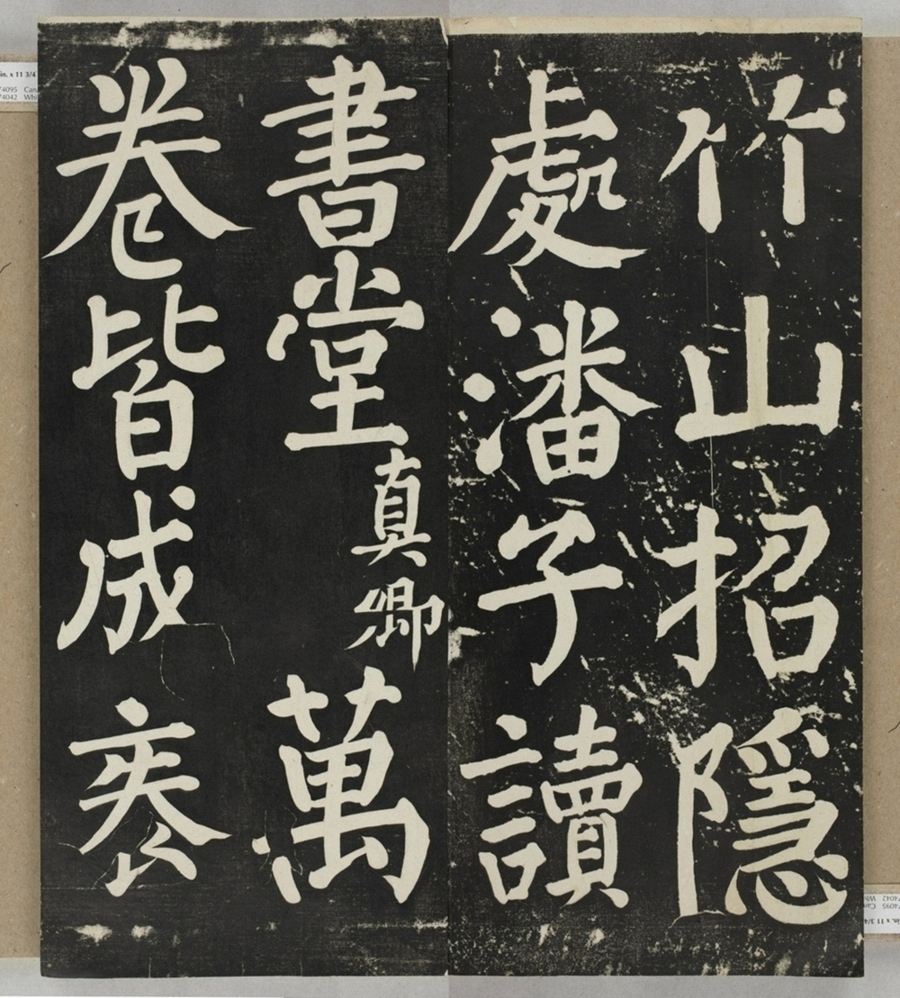 竹山招隱
處潘子讀
書堂真卿萬
卷皆成袠